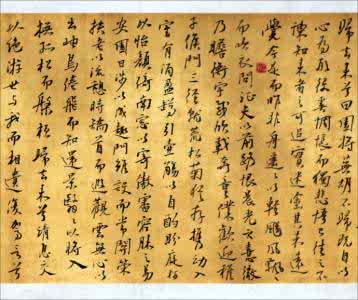 歸去來兮田園將蕪胡不歸既自以
心為形役奚惆悵而獨悲悟已往之不
諫知來者之可追實迷塗其未遠
覺今是而昨非舟遙遙以輕颺風飄飄
而吹衣問征夫以前路恨晨光之熹微
乃瞻衡宇載欣載奔童僕歡迎稚
子候門三徑就荒松菊猶存攜幼入
室有酒盈罇引壺觴以自酌眄庭柯
以怡顏倚南窗以寄傲審容膝之易
安園日涉以成趣門雖設而常關策
扶老以流憩時矯首而遐觀雲無心以
出岫鳥倦飛而知還景翳翳以將入
撫孤松而盤桓歸去來兮請息交
以絕游世與我而相遺復駕言兮